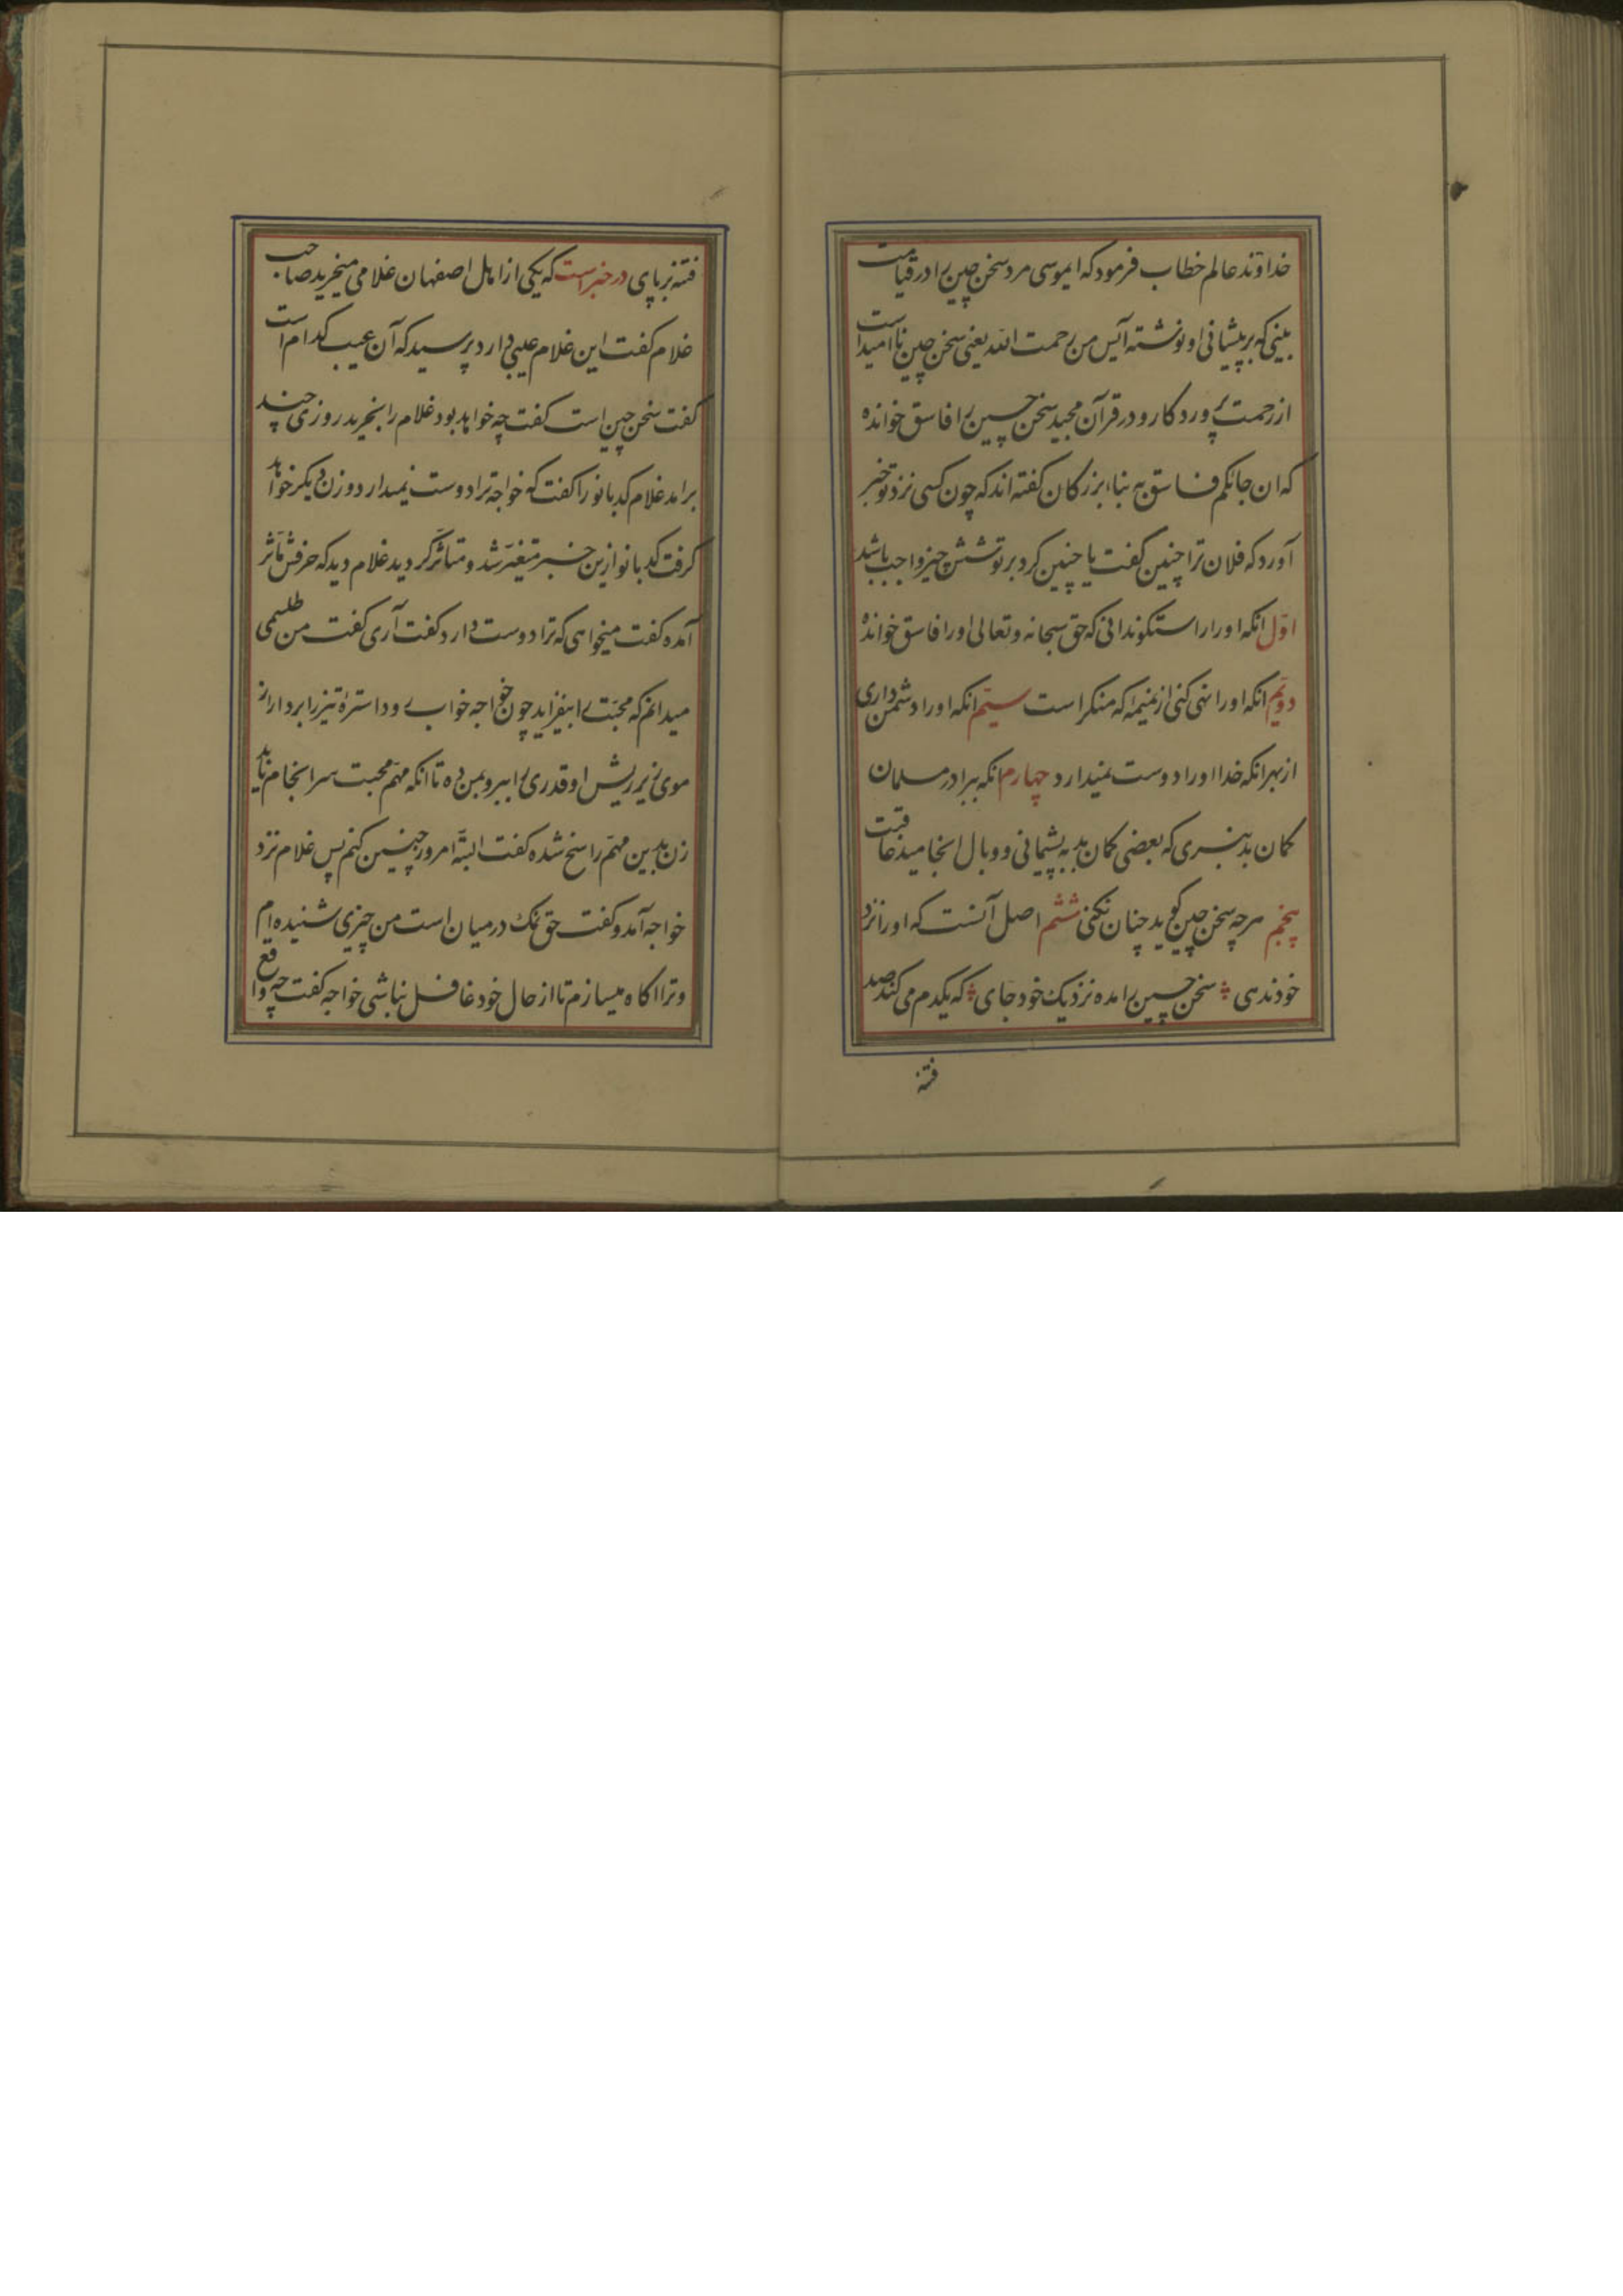 خداوند عالم خطاب فرمود که ایموسی مرد سخن چین را در قیامت
بینی که بر پیشانی او نوشته آیس من رحمت الله یعنی سخن چین ناامید است
از رحمت پروردکار و در قرآن مجید سخن چین را فاسق خوانده
که ان جائکم فاسق به بناء بزرکان کفته اند که چون کسی نزد تو خبر
آورد که فلان ترا چنین کفت یا چنین کرد بر تو شش چیز واجب باشد
اوّل انکه او را راستکو ندانی که حق سبحانه و تعالی او را فاسق خوانده
دویّم انکه او را نهی کنی از نمیمه که منکر است سیّم انکه او را دشمن داری
از بهر انکه خدا او را دوست نمیدارد چهارم انکه ببرادر مسلمان
کمان بد نبری که بعضی کمان بد به پشیمانی و وبال انجامید عاقبت
پنجم هرچه سخن چین کوید چنان نکنی ششم اصل آنست که او را نزد
خود ندهی سخن چین را مده نزدیک خود جای که یکدم می کند صد
فتنه
فتنه بر پای در خبر است که یکی از اهل اصفهان غلامی میخرید صاحب
غلام کفت این غلام عیبی دارد پرسید که آن عیب کدام است
کفت سخن چین است کفت چه خواهد بود غلام را بخرید روزی چند
برامد غلام کدبانو را کفت که خواجه ترا دوست نمیدارد و زن دیکر خواهد
کرفت کدبانو ازین خبر متغیّر شد و متاثّر کردید غلام دید که حرفش مآثر
آمده کفت میخواهی که ترا دوست دارد کفت آری کفت من طلسمی
میدانم که محبّت را بیفزاید چون خواجه خواب رود استرهٔ تیز را بردار از
موی زیر ریش او قدری را ببر و بمن ده تا انکه مهمّ محبت سرانجام نماید
زن بدین مهمّ راسخ شده کفت البتّه امروز چنین کنم پس غلام نزد
خواجه آمد و کفت حق نمک در میان است من چیزی شنیده ام
و ترا اکاه میسازم تا از حال خود غافل نباشی خواجه کفت چه واقع